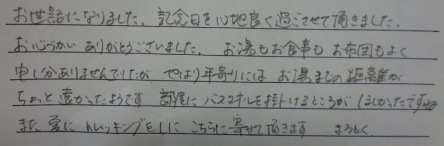 お世話になりました。記念日を心地良く過ごさせて頂きました。
お心づかい ありがとうございました。 お湯もお食事も お布団もよく
申し分ありませんでしたが やはり年寄りには お湯までの距離が
ちょっと遠かったようです 部屋に バスタオルを掛けるところが ほしかったですね
また 夏に トレッキングをしに こちらに寄せて頂きます